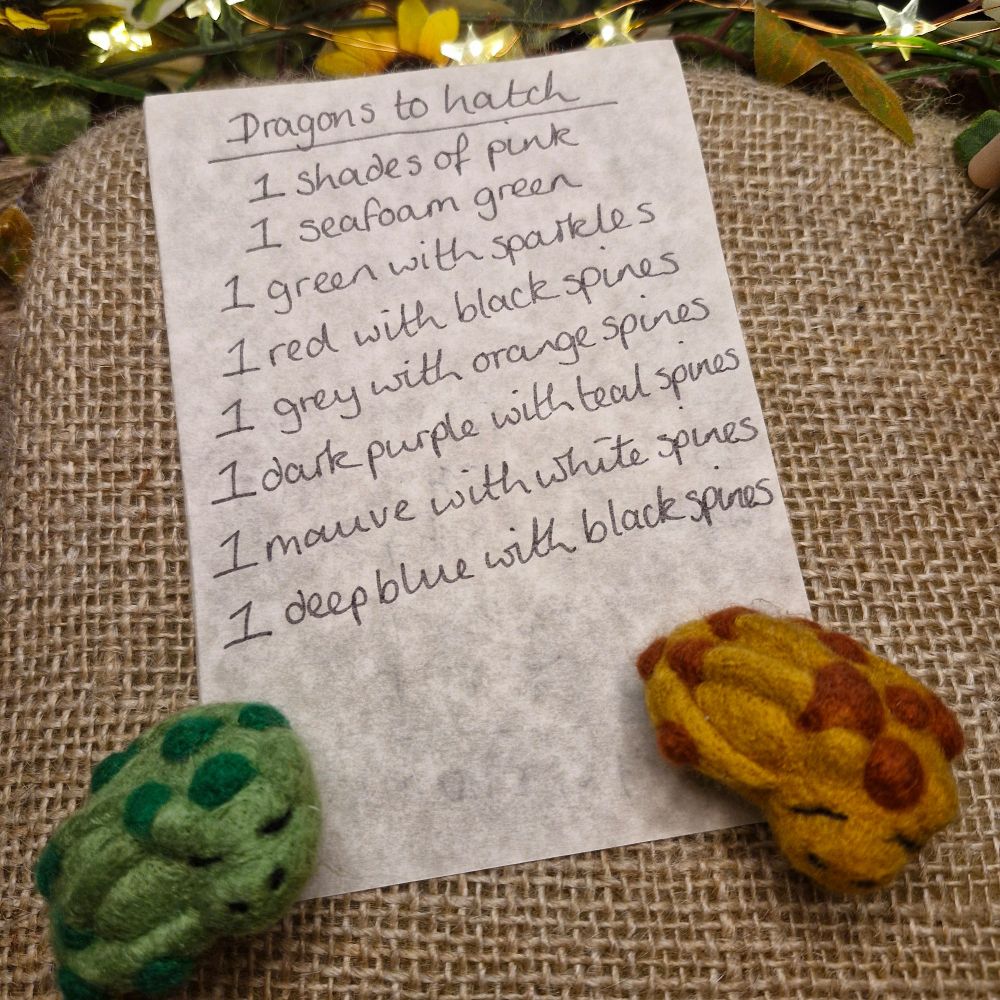 Dragons to hatch
1 shades of pink
1 seafoam green
1 green with sparkles
1 red with black spines
1 grey with orange spines
1 dark purple with teal spines
1 mauve with white spines
1 deep blue with black spines